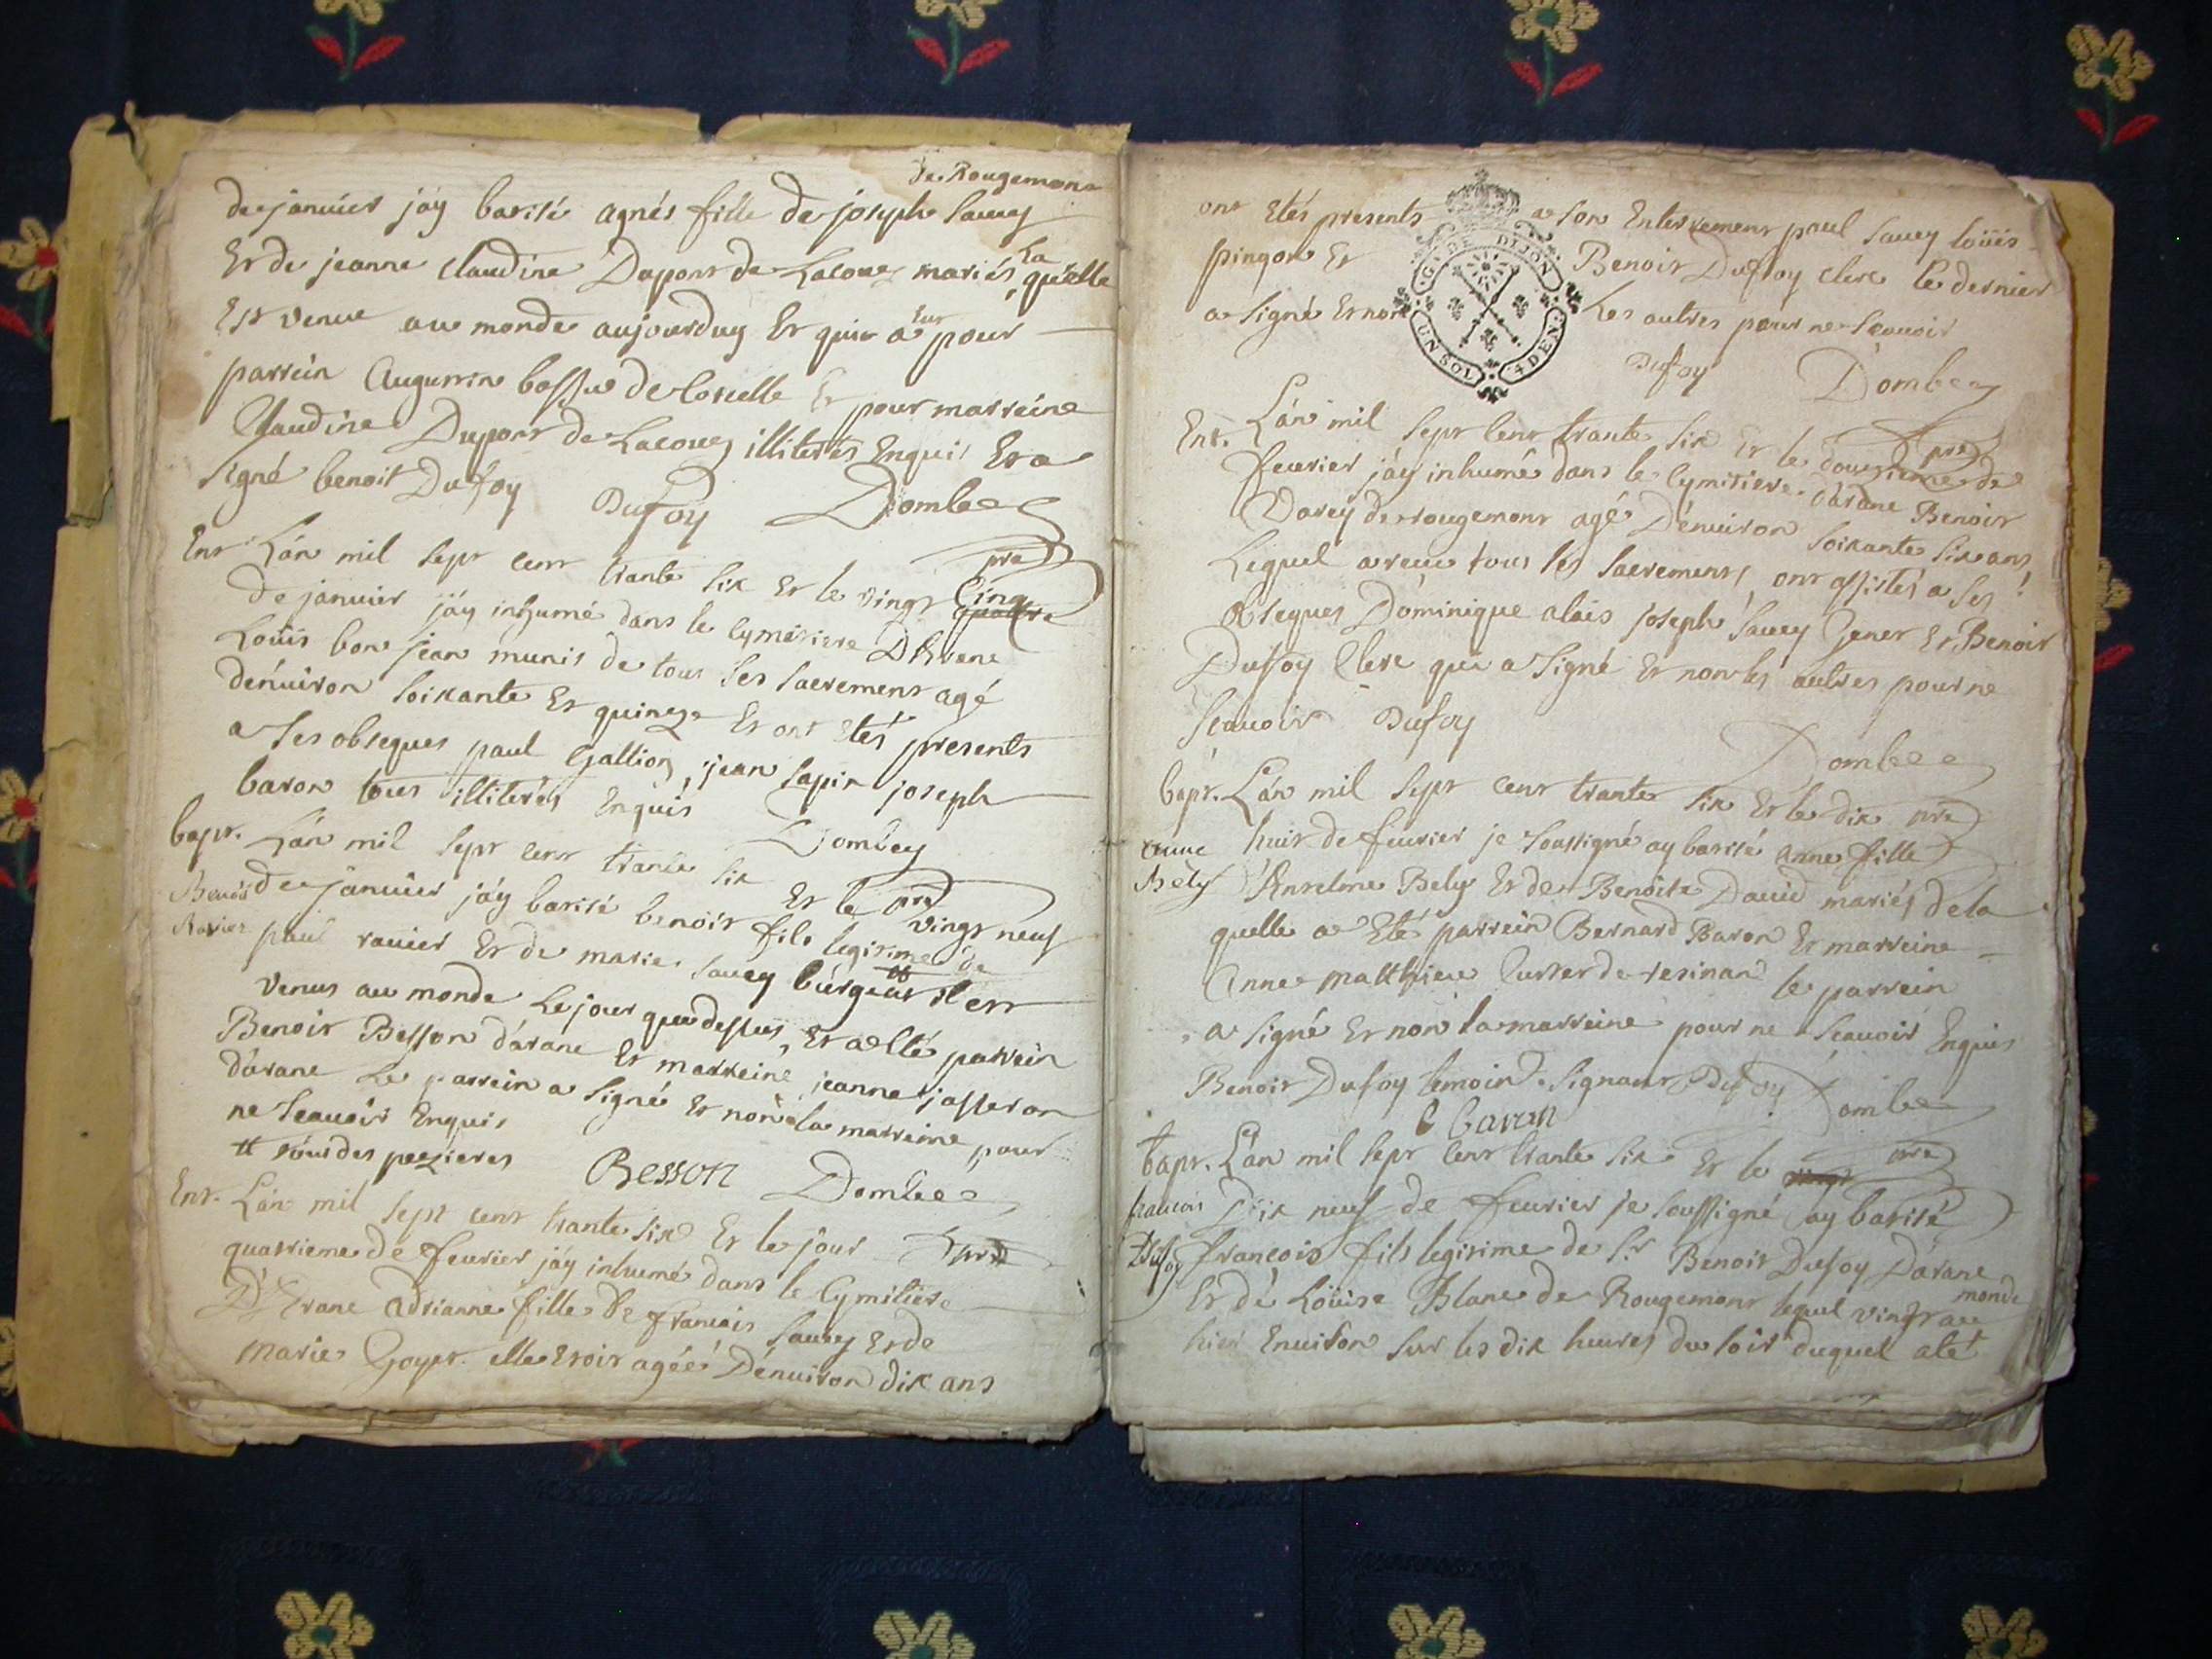 de Rougemont
de janvier j'ay batisé agnés fille de joseph Savey
Et de jeanne claudine Dupont de Lacoux mariés, La quelle
Est venue au monde aujourduy Et qui a Eut pour
parrein Augustin bossu de Corcelle Et pour marreine
Claudine Dupont de Lacoux illiterés Enquis Et a
signé benoit Dufoy Dufoy Dombey
pre
Ent. L'án mil sept cent trante six Et le vingt Cinq quattre
de janvier j'áy inhumé dans le Cymétiere D'Arane
Loüis bon jean munis de tous ses sacrement agé
dénuiron soixante Et quinze Et ont Etés présents
a ses obseques paul Gallion, jean sapin joseph
baron tous illiterés Enquis Dombey
pre
bapt. L'án mil sept cent trante six Et le vingt neuf
Benoit de janvier j'áy batisé benoit fils legitime de
Ravier paul ravier Et de marie savey burgeat Il Est
venus au monde Le jour que dessus, Et a Eté parrein
Benoit Besson d'arane Et marreine jeanne jasseron
d'arane Le parrein a signé Et non la marreine pour
ne sçauoir Enquis
# des pezieres Besson Dombey
pre
Ent. L'án mil sept cent trante six Et le jour
quatrieme de feurier j'áy inhumé dans le Cymitiere
D'Erane adrianne fille de francois Savey Et de
marie Goyet. elle Etoit agéé Dénuiron dix ans
ont Etés présents a son Enterrement paul Savey loüis
pingon Et Benoit Dufoy clerc le dernier
a signé Et non Les autres pour ne sçauoir
G. DE DIJON
UN SOL 4 DEN.
Dufoy Dombey
pre
Ent. L'án mil sept cent trante six Et le douzieme de
feurier j'áy inhumé dans le Cymitiere d'arane Benoit
Darey de rougemont agé Dénuiron soixante six ans,
Lequel a reçu tous les sacrements, ont assistés a ses
obseques Dominique alois joseph Savey Gener Et Benoit
Dufoy Clerc qui a signé Et non les autres pour ne
sçauoir Dufoy Dombey
pre
bapt. L'án mil sept cent trante six Et le dix
anne huit de feurier je soussigné ay batisé anne fille
Bely d'Anselme Bely Et de Benoite Dauid mariés de la
quelle a Eté parrein Bernard Baron Et marreine
Anne Matthieu de resinand le parrein
a signé Et non la marreine pour ne sçauoir Enquis
Benoit Dufoy temoin signant Dufoy Dombey
B baron
pre
bapt. L'án mil sept cent trante six Et le vingt
francois Dix neuf de feurier je soussigné ay batisé
Dufoy francois fils legitime de Sr Benoit Dufoy D'arane
Et dé Loüise Blanc de Rougemont lequel vint au monde
hier Enuiron sur les dix heures du soir duquel a eté